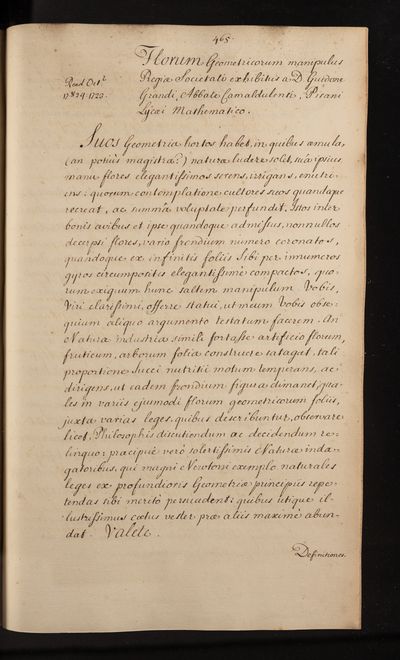 465.
Florum Geometricorum manipulus
Regiæ Societati exhibitus a D. Guidone
Grandi, Abbate Camaldulensi, Pisani
Lycæi Mathematico.
Read Oct.
1723.
Suos Geometria hortos habet, in quibus æmula,
(an potius magistra?) naturæ ludere solet, suâ ipsius
manu flores elegantissimos serens, irrigans, enutri-
ens: quorum contemplatione cultores suos quandoque
recreat, ac summâ voluptate perfundit. Istos inter
bonis avibus et ipse quandoque admissus, nonnullos
decerpsi flores, vario frondium numero coronatos,
quandoque ex infinitis foliis sibi per innumeros
gyros circumpositis elegantissimè compactos, quo-
rum exiguum hunc saltem manipulum Vobis,
Viri clarissimi, offerre statui, ut meum Vobis obse-
quium aliquo argumento testatum facerem. An
Natura industria simili fortasse artificio florum,
fruticum, arborum folia construere satagat, tali
proportione succi nutritii motum temperans, ac
dirigens, ut eadem frondium figura dimanet, qua-
les in variis ejusmodi florum geometricorum foliis,
juxta varias leges, quibus describuntur, observare
licet, Philosophis discutiendum ac decidendum re-
linquo: præcipuè verò solertissimis Naturæ inda-
gatoribus, qui magni Newtoni exemplo naturales
leges ex profundioris Geometriæ principiis repe-
tendas sibi meritò persuadent: quibus utique il-
lustrissimus cœtus vester præ aliis maximè abun-
dat. Valete.
Definitiones.